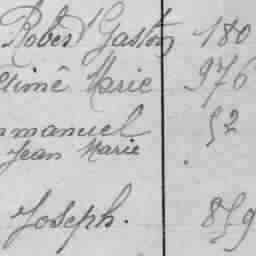 Robert Gaston 180
Aimé Marie 976
mmanuel 52
Jean Marie
Joseph. 859